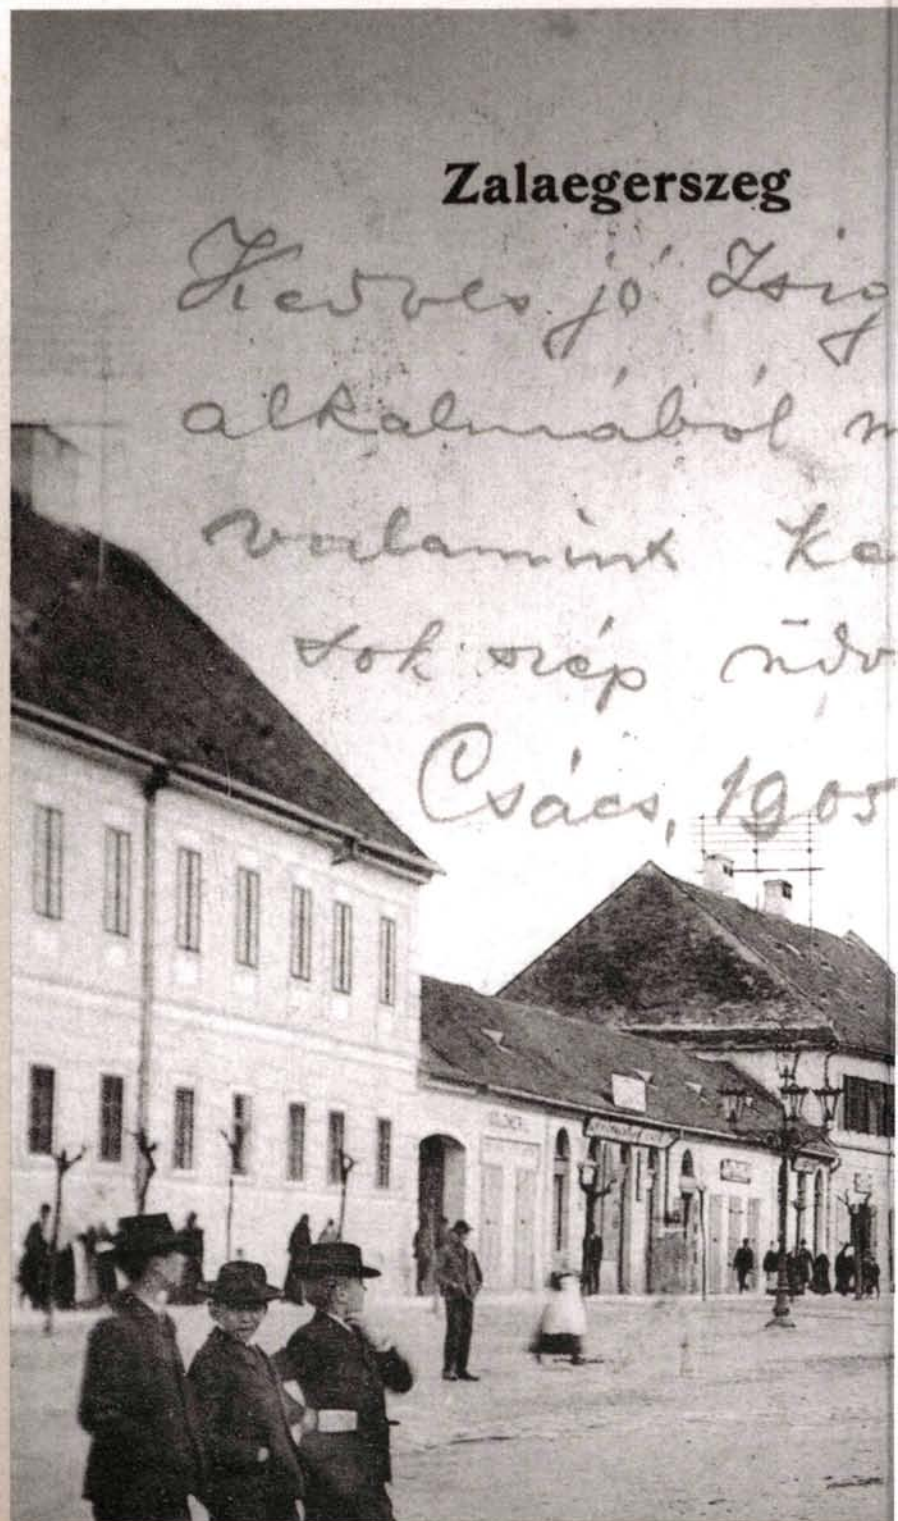 Zalaegerszeg
Kedves jó Zsig
alkalmából m
valamint ke
sok szép üdv
Csács, 1905